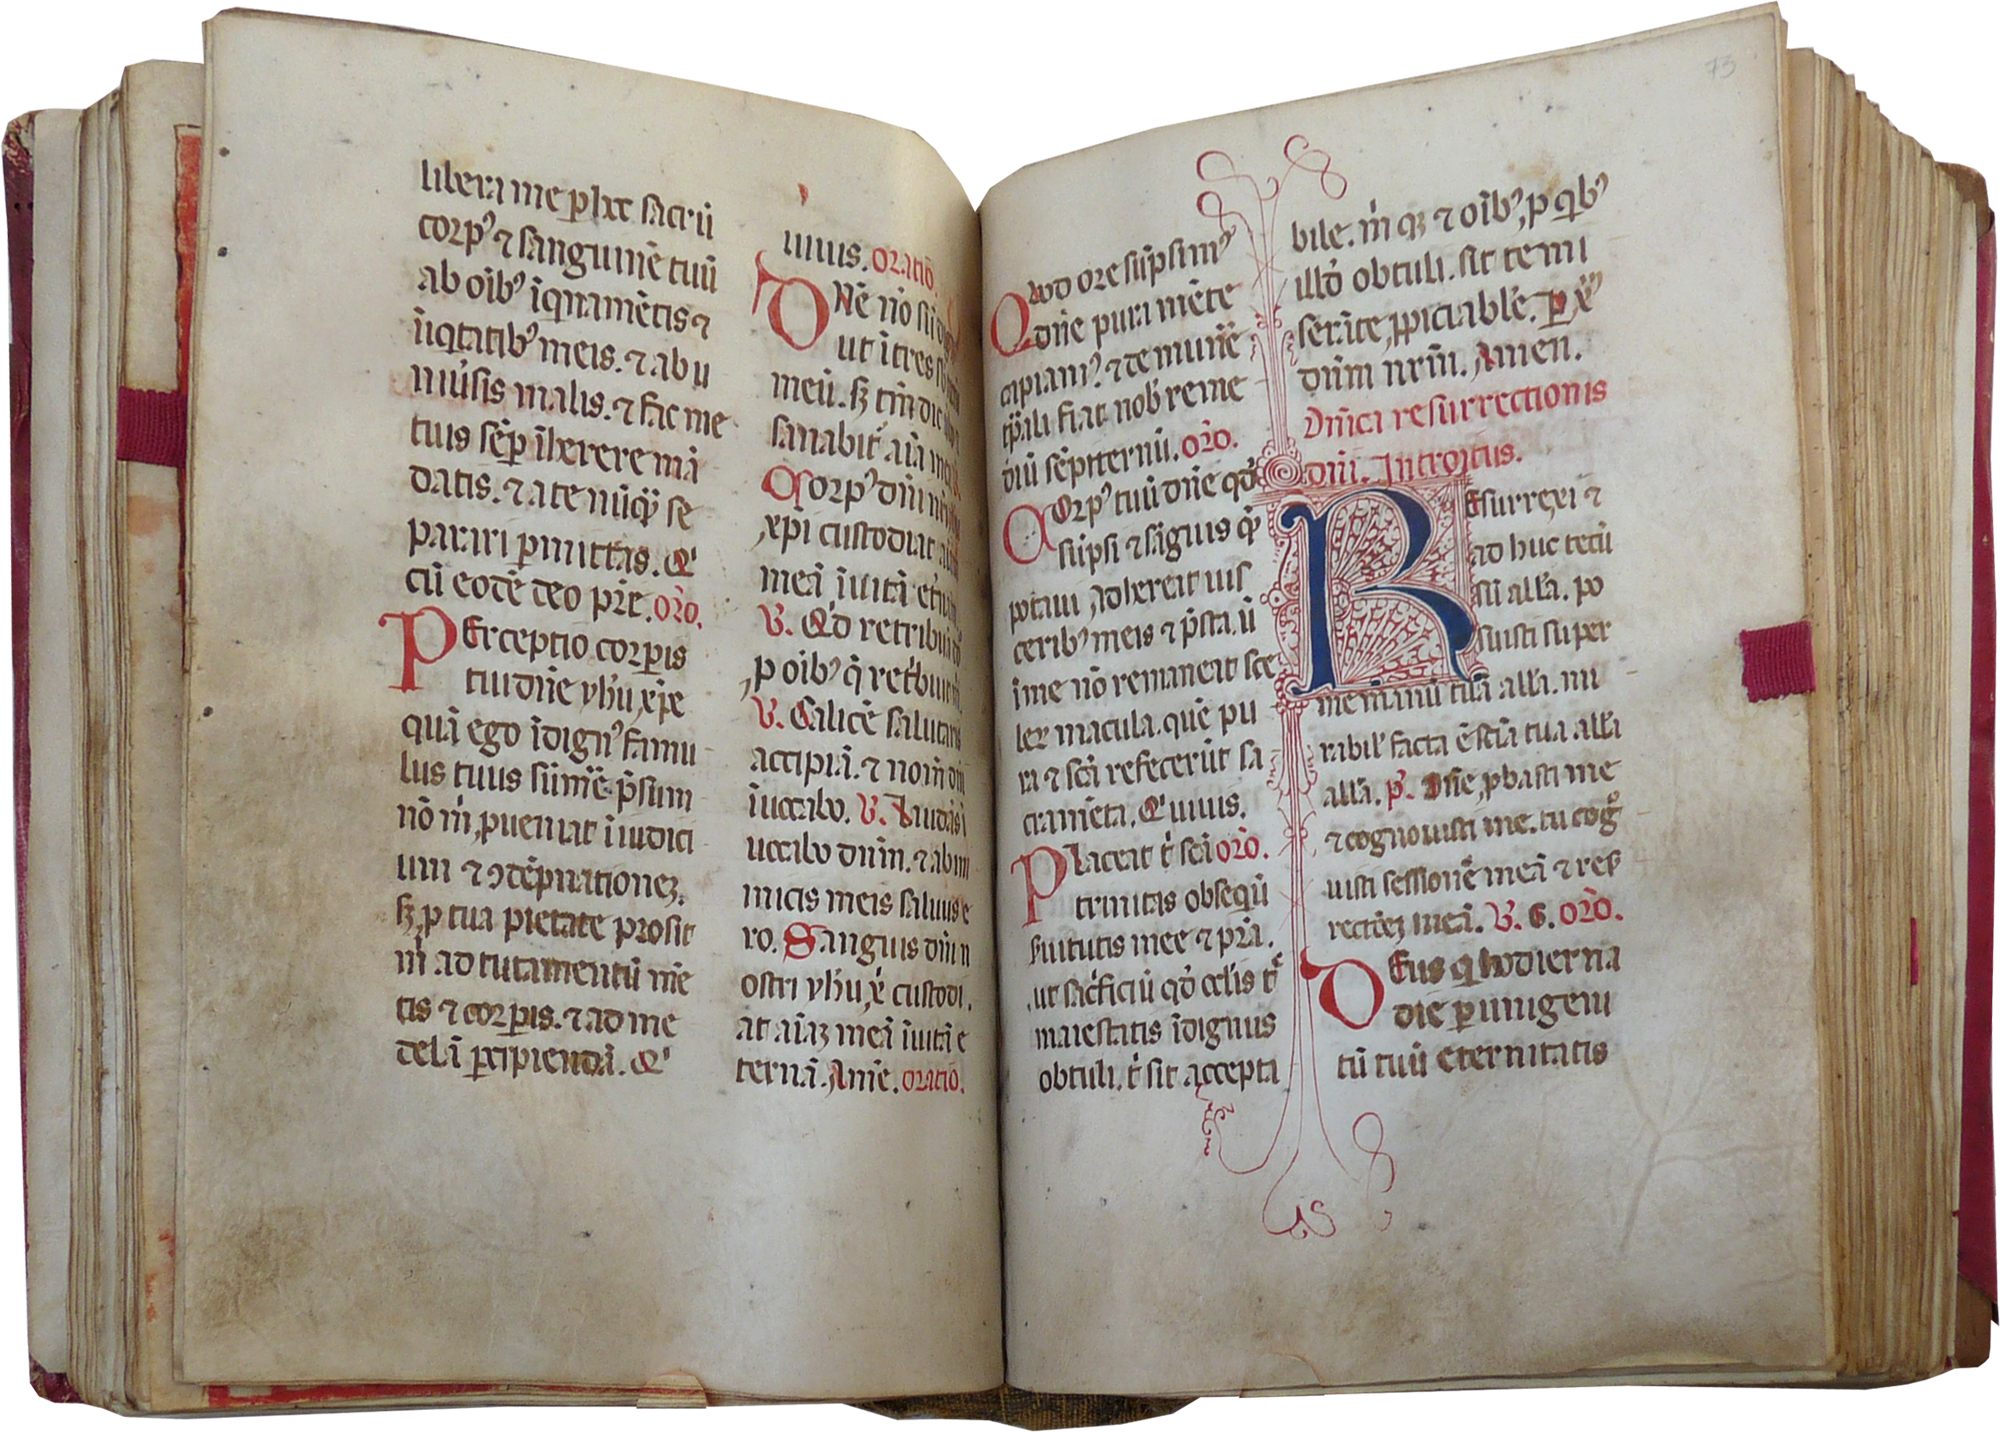 libera me p hͨ sacrū
corpꝰ ⁊ sanguinē tuū
ab oībꝰ īqnamētis ⁊
īiqtatibꝰ meis. ⁊ ab u
niūsis malis. ⁊ fac me
tuis sēꝑ īherere mā
datis. ⁊ a te nūq̄ se
parari ꝑmittas. Qⁱ
cū eodē deo pr̄e. or̄o.
PErceptio corꝑis
tui dn̄e yh̄u xp̄e
quā ego īdignꝰ famu
lus tuus sūme p̄sum
nō m̄ ꝓueniat ī iudici
um ⁊ ↄdēpnationeꝫ.
sꝫ ꝓ tua pietate prosit
m̄ ad tutamentū mē
tis ⁊ corꝑis. ⁊ ad me
delā ꝑcipiendā. Qⁱ
uiuis. oratiō.
DNē nō sū
ut ītres
meū. sꝫ tm̄ dic
sanabit᷑ aīa
Corpꝰ dn̄i
xp̄i custodiat
meā ī uitā
V. Qⁱd retribuā
ꝓ oībꝰ q̄ ret͛buit
V. Calicē salutaris
accipiā. ⁊ nom̄ dn̄i
īuocabo. V. Laudās ī
uocabo dn̄m. ⁊ ab ini
micis meis saluus e
ro. Sanguis dn̄i n
ostri yh̄u x̄ custodi
at aīaꝫ meā ī uitā e
ternā. Amē. oratiō.
Quod ore sūpsimꝰ
dn̄e pura mēte
capiamꝰ. ⁊ de mun̄e
tp̄ali fiat nob̄ reme
diū sēpiternū. or̄o.
Corpꝰ tuū dn̄e qd̄
sūpsi ⁊ sāguis q̄
potaui adhereat uis
ceribꝰ meis ⁊ p̄sta. ū
ī me nō remaneat sce
ler̄ macula. quē pu
ra ⁊ scā refecerūt sa
cramēta. Qⁱ uiuis.
Placeat t̄ scā or̄o.
trinitas obseqū
s͛uitutis mee ⁊ pr̄a.
ut sac͛ficiū qd̄ oclīs t̄
maiestatis īdignus
obtuli. t̄ sit accepta
bile. m̄ qꝫ ⁊ oībꝰ, ꝓ qⁱbꝰ
illd̄ obtuli. sit te mi
serāte ꝓpiciabile. ꝑ x̄
dn̄m nrm̄. Amen.
Dn̄ica resurrectionis
dn̄i. Introitus.
REsurrexi ⁊
ad huc tecū
sū all̄a. po
suisti super
me manū tuā all̄a. mi
rabil̄ facta ē scīa tua all̄a
all̄a. p̄. Dn̄e ꝓbasti me
⁊ cognouisti me. tu cog
uisti sessionē meā ⁊ res
rectōeꝫ meā. V. G. or̄o.
DEus qⁱ hodierna
die ꝑ unigeni
tū tuū eternitatis
73